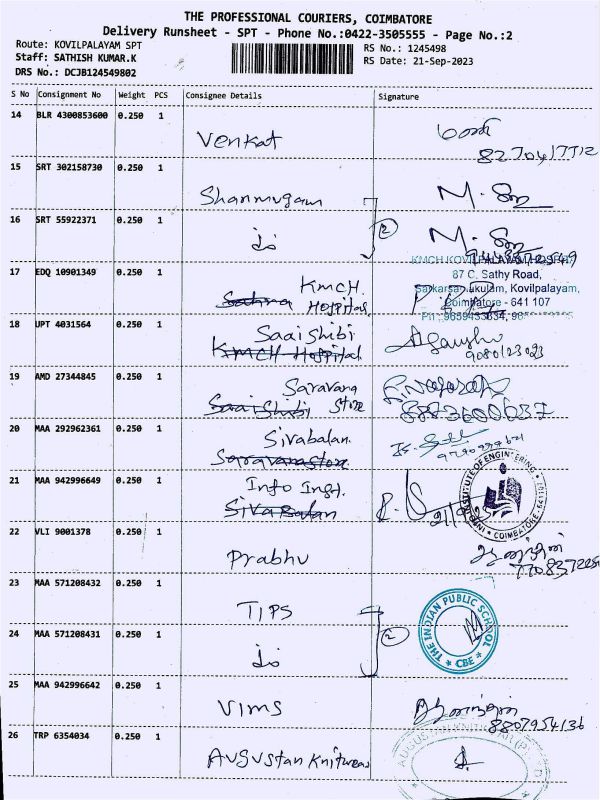 THE PROFESSIONAL COURIERS, COIMBATORE
Delivery Runsheet - SPT - Phone No.:0422-3505555 - Page No.:2
Route: KOVILPALAYAM SPT
Staff: SATHISH KUMAR.K
DRS No.: DCJB124549802
RS No.: 1245498
RS Date: 21-Sep-2023
S No Consignment No Weight PCS Consignee Details Signature
14 BLR 4300853600 0.250 1
Venkat
15 SRT 302158730 0.250 1
Shanmugam M.
16 SRT 55922371 0.250 1
do 2 M.
17 EDQ 10901349 0.250 1
KMCH
Hospital
KMCH KOVILPALAYAM HOSPITAL
87 C. Sathy Road,
Kovilpalayam,
Coimbatore - 641 107
18 UPT 4031564 0.250 1
Saai Shibi
KMCH Hospital
9080123023
19 AMD 27344845 0.250 1
Saravana
Saai Shibi Store
20 MAA 292962361 0.250 1
Sivabalan
Saravana Store
21 MAA 942996649 0.250 1
Info Inst.
Sivabalan
INSTITUTE OF ENGINEERING
COIMBATORE
22 VLI 9001378 0.250 1
Prabhu
23 MAA 571208432 0.250 1
TIPS
THE INDIAN PUBLIC SCHOOL
* CBE *
24 MAA 571208431 0.250 1
do 2
25 MAA 942996642 0.250 1
Vims
8807954136
26 TRP 6354034 0.250 1
Augustan Knitwear